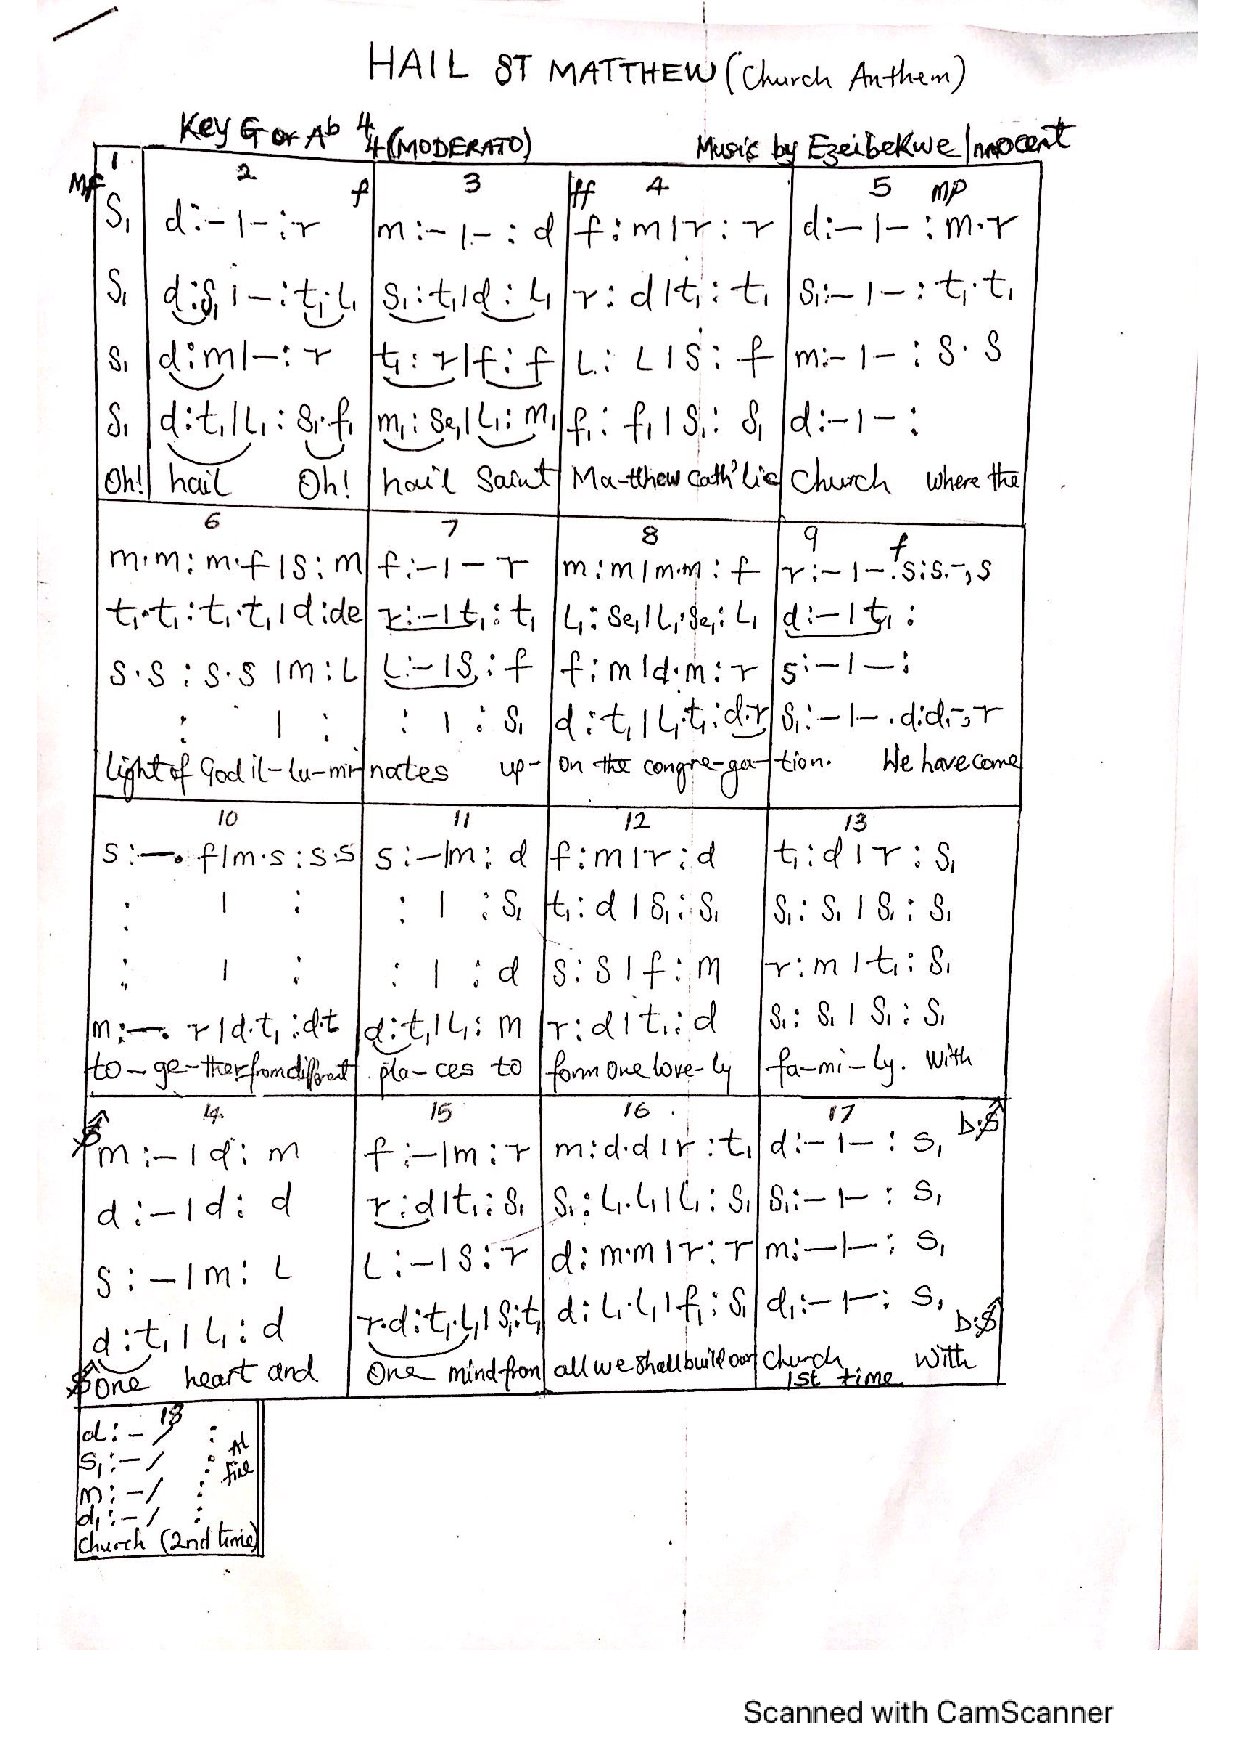 HAIL ST MATTHEW (Church Anthem)
Key G or Ab 4/4 (MODERATO) Music by Ezeibekwe Innocent
1 2 3 4 5
Mf f ff mp
S₁ d:-|-:r m:-|-:d f:m|r:r d:-|-:m.r
S₁ d:S₁|-:t₁.L₁ S₁:t₁|d:L₁ r:d|t₁:t₁ S₁:-|-:t₁.t₁
S₁ d:m|-:r t₁:r|f:f L:L|S:f m:-|-:S.S
S₁ d:t₁|L₁:S₁.f₁ m₁:Se₁|L₁:m₁ f₁:f₁|S₁:S₁ d:-|-:
Oh! hail Oh! hail Saint Ma-tthew Cath'lic Church where the
6 7 8 9 f
m.m:m.f|S:m f:-|-r m:m|m.m:f r:-|-.s:s.-,s
t₁.t₁:t₁.t₁|d:de r:-|t₁:t₁ L₁:Se₁|L₁.Se₁:L₁ d:-|t₁:
S.S:S.S|m:L L:-|S:f f:m|d.m:r s:-|-:
:|: :|:S₁ d:t₁|L₁.t₁:d.r S₁:-|-.d:d.-,r
light of God il-lu-mi-nates up-on the congre-ga-tion. We have come
10 11 12 13
s:-.f|m.s:s.s s:-|m:d f:m|r:d t₁:d|r:S₁
:|: :|:S₁ t₁:d|S₁:S₁ S₁:S₁|S₁:S₁
:|: :|:d S:S|f:m r:m|t₁:S₁
m:-.r|d.t₁:d.t d:t₁|L₁:m r:d|t₁:d S₁:S₁|S₁:S₁
to-ge-ther from different pla-ces to form one love-ly fa-mi-ly. With
14. 15 16 17 D:S
S m:-|d:m f:-|m:r m:d.d|r:t₁ d:-|-:S₁
d:-|d:d r:d|t₁:S₁ S₁:L₁.L₁|L₁:S₁ S₁:-|-:S₁
S:-|m:L L:-|S:r d:m.m|r:r m:-|-:S₁
d:t₁|L₁:d r.d:t₁.L₁|S₁:t₁ d:L₁.L₁|f₁:S₁ d₁:-|-:S₁ D:S
S One heart and One mind from all we shall build our Church With
1st time
18
d:-/ :
S₁:-/ : Al
m:-/ : fine
d₁:-/ :
Church (2nd time)
Scanned with CamScanner